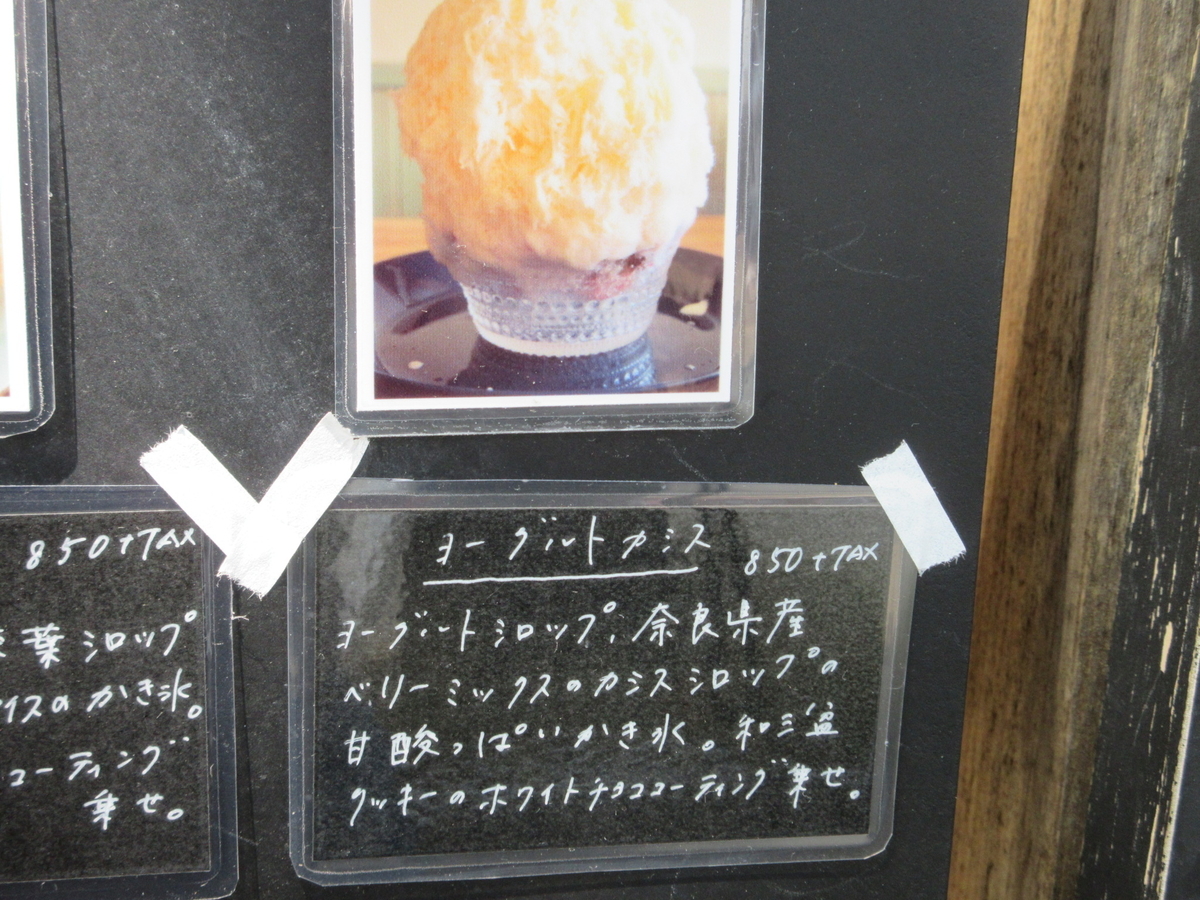 850+TAX
葉シロップ
イスのかき氷。
コーティング
乗せ。
ヨーグルトカシス
850+TAX
ヨーグルトシロップ、奈良県産
ベリーミックスのカシスシロップの
甘酸っぱいかき氷。和三盆
クッキーのホワイトチョココーティング乗せ。